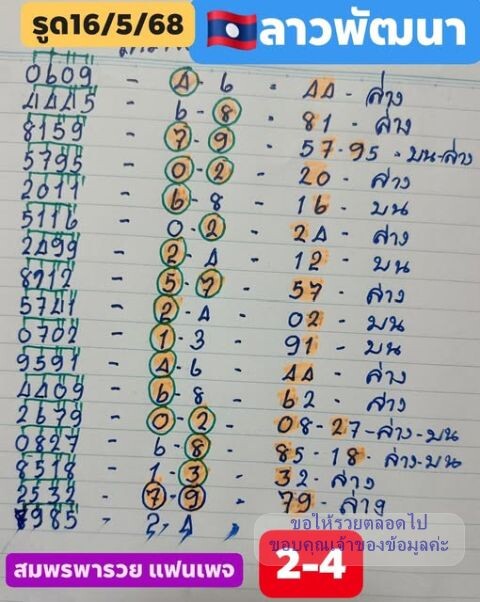 รูด16/5/68
🇱🇦ลาวพัฒนา
0609 - 4-6 - 44 - ล่าง
4445 - 6-8 - 81 - ล่าง
8159 - 7-9 - 57-95 - บน-ล่าง
5795 - 0-2 - 20 - ล่าง
2011 - 6-8 - 16 - บน
5116 - 0-2 - 24 - ล่าง
2499 - 2-4 - 12 - บน
8912 - 5-7 - 57 - ล่าง
5741 - 2-4 - 02 - บน
0702 - 1-3 - 91 - บน
9591 - 4-6 - 44 - ล่าง
4409 - 6-8 - 62 - ล่าง
2679 - 0-2 - 08-27-ล่าง-บน
0827 - 6-8 - 85-18-ล่าง-บน
8518 - 1-3 - 32-ล่าง
2532 - 7-9 - 79-ล่าง
9985 - 2-4 ,
ขอให้รวยตลอดไป
ขอบคุณเจ้าของข้อมูลค่ะ
สมพรพารวย แฟนเพจ
2-4